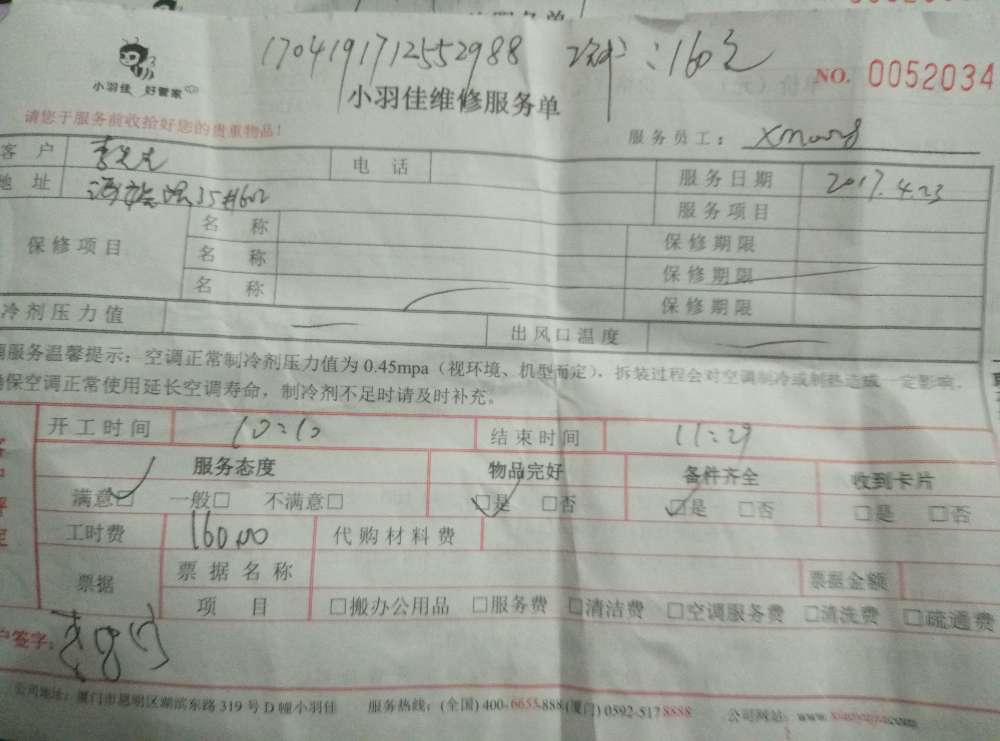 1704191712552988 :160元
小羽佳 好管家
NO. 0052034
小羽佳维修服务单
请您于服务前收拾好您的贵重物品！
服务员工：
客户 李先生 电话 服务日期 2017.4.23
地址 35#602 服务项目
保修项目 名称 保修期限
名称 保修期限
名称 保修期限
冷剂压力值 出风口温度
服务温馨提示：空调正常制冷剂压力值为 0.45mpa（视环境、机型而定），拆装过程会对空调制冷或制热造成一定影响，
保空调正常使用延长空调寿命，制冷剂不足时请及时补充。
开工时间 10:10 结束时间 11:29
服务态度 物品完好 备件齐全 收到卡片
满意☑ 一般□ 不满意□ ☑是 □否 ☑是 □否 □是 □否
工时费 160.00 代购材料费
票据 票据名称 票据金额
项目 □搬办公用品 □服务费 □清洁费 □空调服务费 □清洗费 □疏通费
户签字：
公司地址：厦门市思明区湖滨东路 319 号 D 幢小羽佳 服务热线：(全国) 400-6655-888 (厦门) 0592-5178888 公司网站：